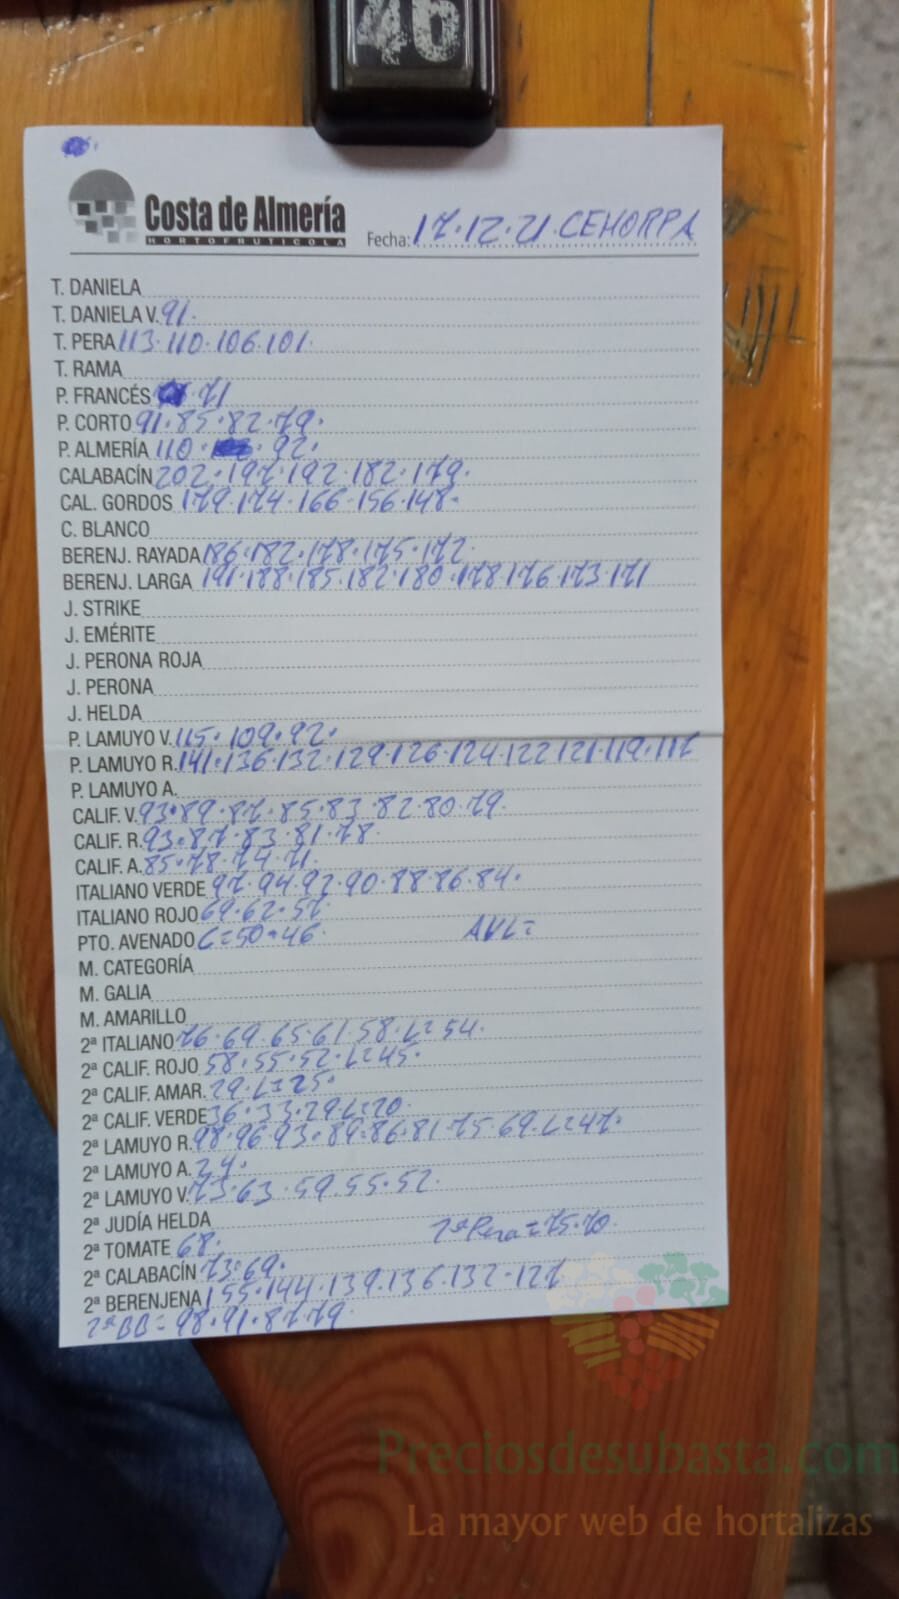 46
Costa de Almería
HORTOFRUTICOLA
Fecha: 17.12.21.CEHORPA
T. DANIELA
T. DANIELA V. 91.
T. PERA 113.110.106.101.
T. RAMA
P. FRANCÉS 71
P. CORTO 91.85.82.79.
P. ALMERÍA 110. 92.
CALABACÍN 202.197.192.182.179.
CAL. GORDOS 179.174.166.156.148.
C. BLANCO
BERENJ. RAYADA 186.182.178.175.172.
BERENJ. LARGA 191.188.185.182.180.178.176.173.171
J. STRIKE
J. EMÉRITE
J. PERONA ROJA
J. PERONA
J. HELDA
P. LAMUYO V. 115.109.92.
P. LAMUYO R. 141.136.132.129.126.124.122.121.119.117
P. LAMUYO A.
CALIF. V. 93.89.87.85.83.82.80.79.
CALIF. R. 93.87.83.81.78.
CALIF. A. 85.78.74.71.
ITALIANO VERDE 97.94.92.90.88.86.84.
ITALIANO ROJO 69.62.57.
PTO. AVENADO C=50.46. AVL=
M. CATEGORÍA
M. GALIA
M. AMARILLO
2ª ITALIANO 76.69.65.61.58.L=54.
2ª CALIF. ROJO 58.55.52.L=45.
2ª CALIF. AMAR. 29.L=25.
2ª CALIF. VERDE 36.33.29.L=20.
2ª LAMUYO R. 98.96.93.89.86.81.75.69.L=47.
2ª LAMUYO A. 24.
2ª LAMUYO V. 73.63.59.55.52.
2ª JUDÍA HELDA
2ª TOMATE 68. 2ª Pera=75.70.
2ª CALABACÍN 73.69.
2ª BERENJENA 155.144.139.136.132.127
2ª BB=98.91.87.79.
Preciosdesubasta.com
La mayor web de hortalizas